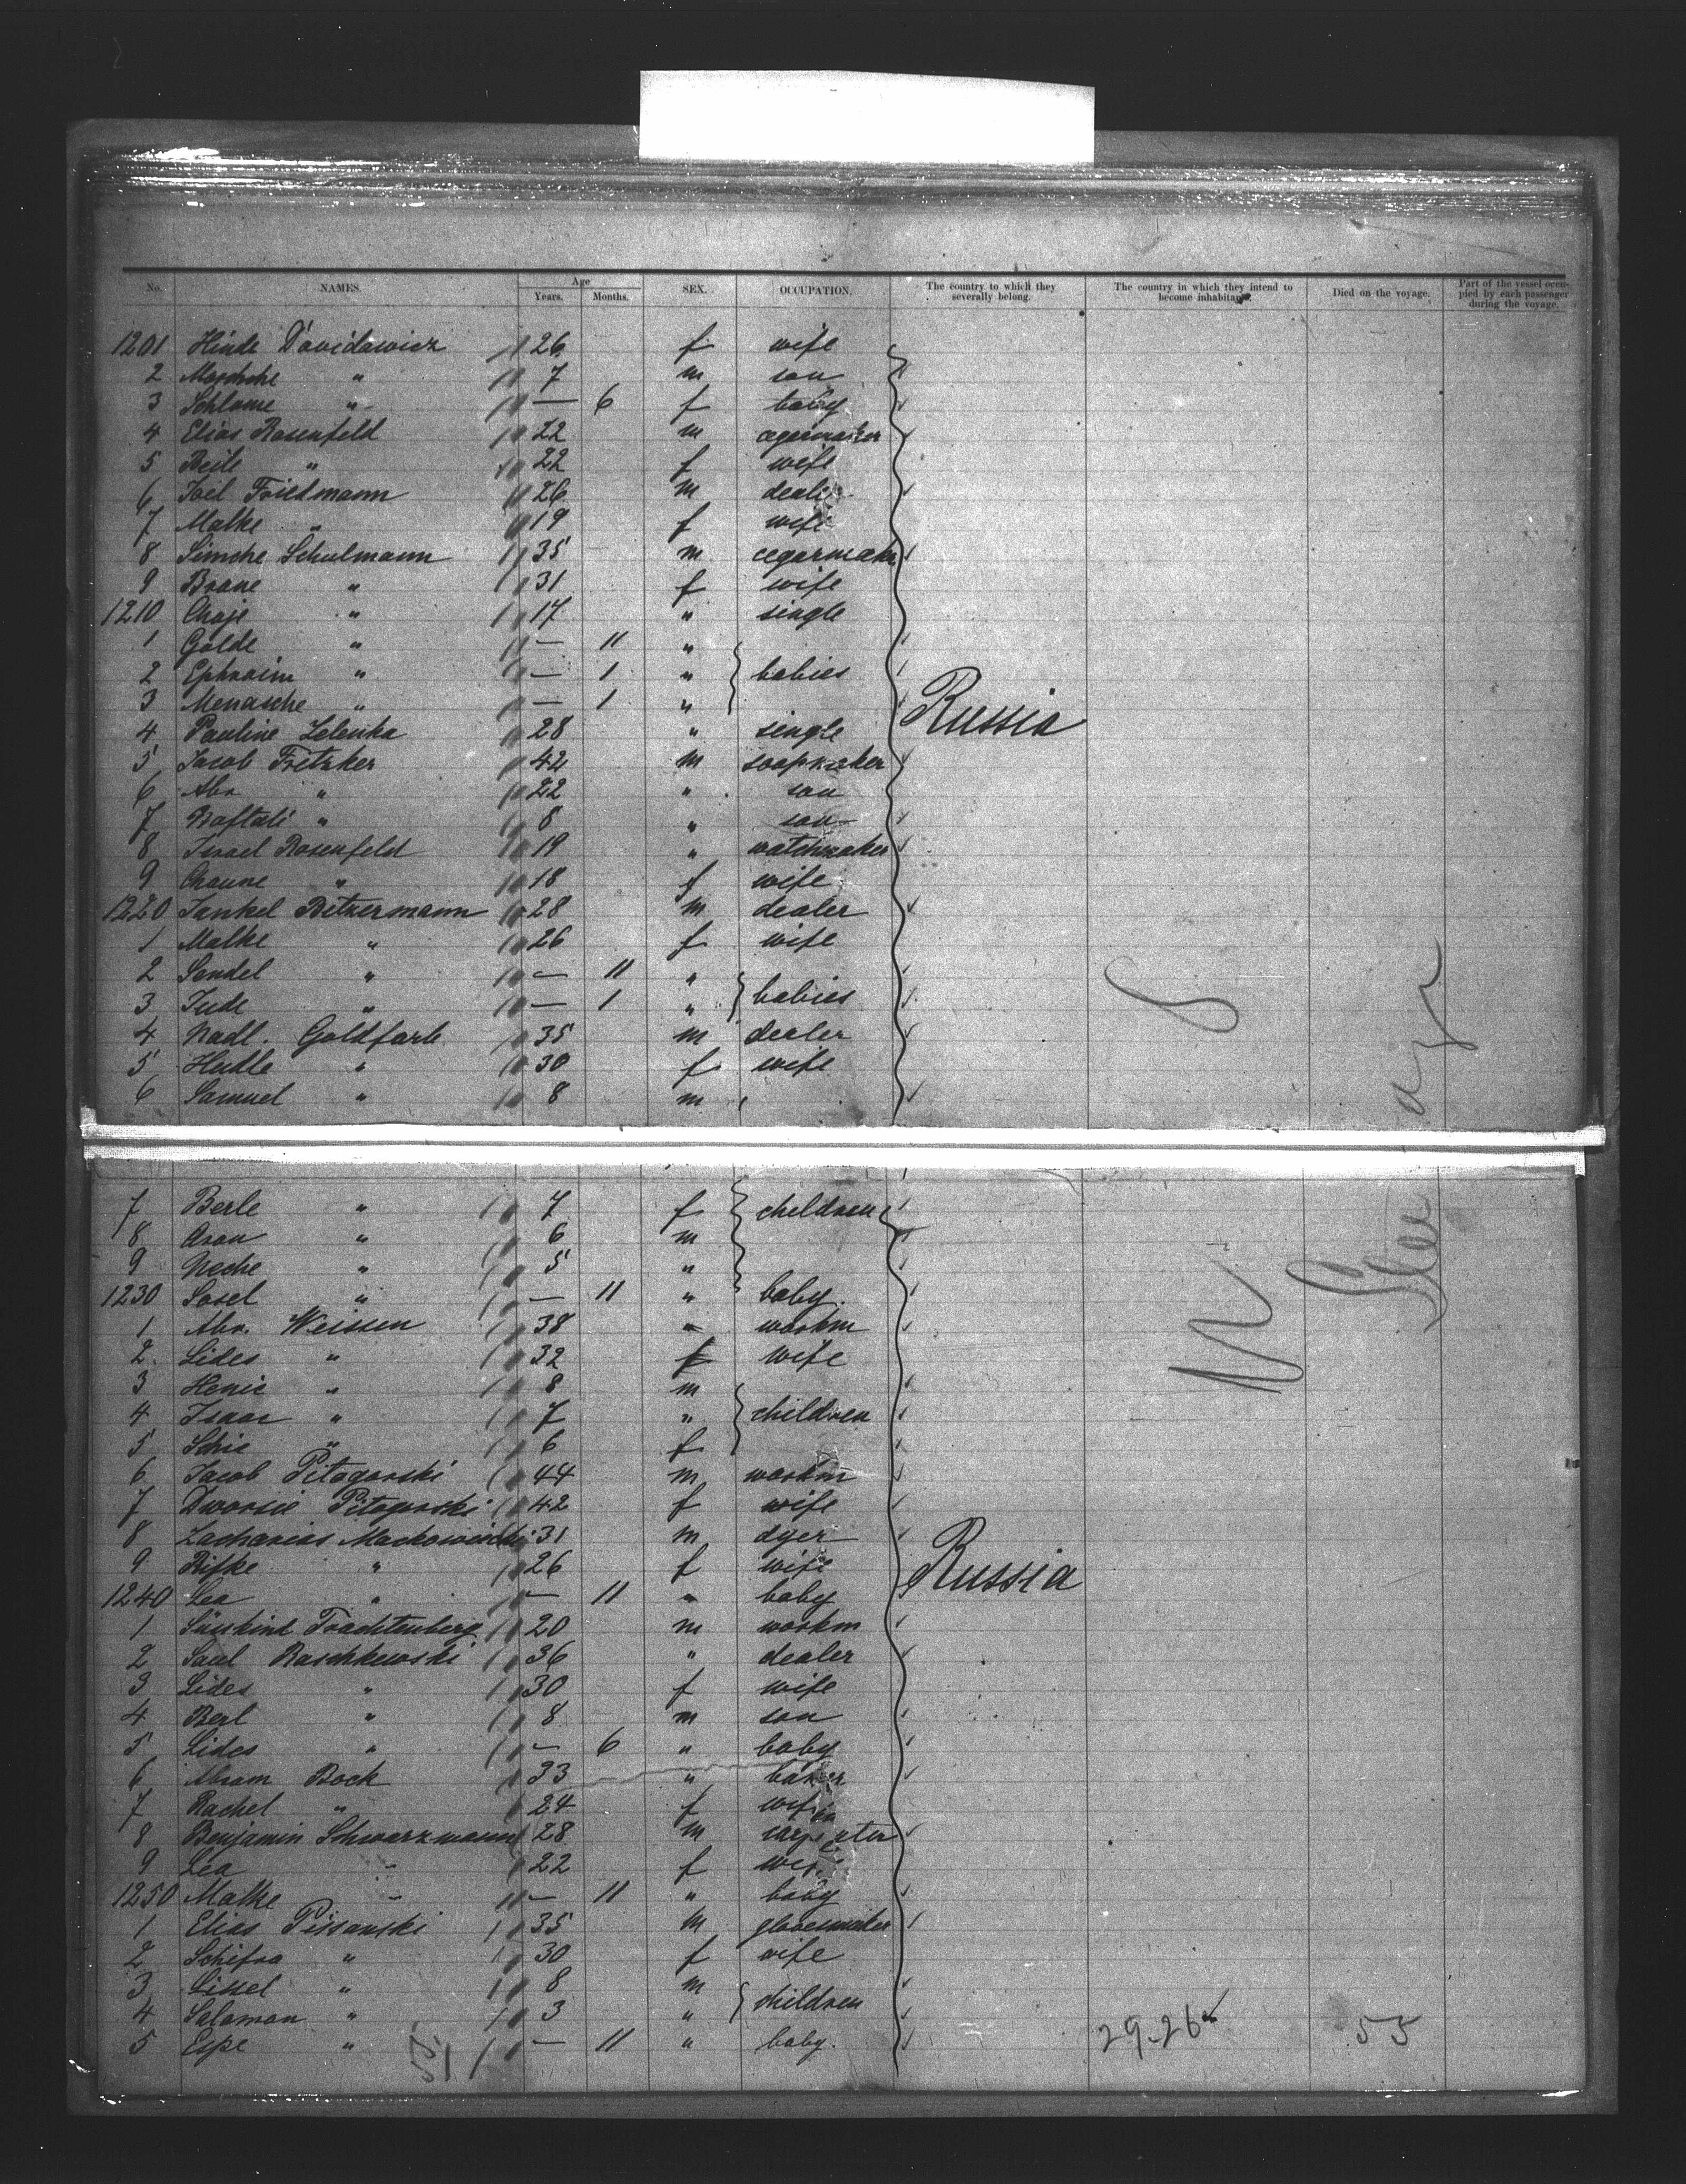 No. NAMES. Age Years. Months. SEX. OCCUPATION. The country to which they severally belong. The country in which they intend to become inhabitants. Died on the voyage. Part of the vessel occupied by each passenger during the voyage.
1201 Hinde Davidowicz 26 f wife
2 Moschche " 7 m son
3 Schlome " — 6 f baby
4 Elias Rosenfeld 22 m cegarmaker
5 Beile " 22 f wife
6 Joel Friedmann 26 m dealer
7 Malke " 19 f wife
8 Simche Schulmann 35 m cegarmaker
9 Brane " 31 f wife
1210 Chaje " 17 " single
1 Golde " — 11 "
2 Ephraim " — 1 " babies
3 Menasche " — 1 "
Russia
4 Pauline Zelenka 28 " single
5 Jacob Fritzker 42 m soapmaker
6 Abr " 22 " son
7 Naftali " 8 " son
8 Israel Rosenfeld 19 " watchmaker
9 Chaune " 18 f wife
1220 Jankel Bitzermann 28 m dealer
1 Malke " 26 f wife
2 Sendel " — 11 "
3 Jude " — 1 " babies
4 Nadl. Goldfarb 35 m dealer
5 Hudle " 30 f wife
6 Samuel " 8 m
7 Berle " 7 f cheldren
8 Aron " 6 m
9 Neche " 5 "
1230 Sosel " — 11 " baby.
1 Abr. Weissen 38 " workm
2 Lides " 32 f wife
3 Henie " 8 m
4 Isaac " 7 " children
5 Schie " 6 f
6 Jacob Pitogorski 44 m workm
7 Dworsie Pitogorski 42 f wife
8 Zacharias Mackowiecki 31 m dyer
9 Rifke " 26 f wife
Russia
1240 Lea " — 11 " baby
1 Süsskind Trachtenberg 20 m workm
2 Saul Raschkewski 36 " dealer
3 Lides " 30 f wife
4 Berl " 8 m son
5 Lides " — 6 " baby
6 Abram Bock 33 " baker
7 Rachel " 24 f wife
8 Benjamin Schwarzmann 28 m carpenter
9 Lea " 22 f wife
1250 Malke " — 11 " baby
1 Elias Pissanski 35 m glovesmaker
2 Schifra " 30 f wife
3 Lissel " 8 m
4 Salomon " 3 " children
5 Espe " — 11 " baby.
29-26 55
55